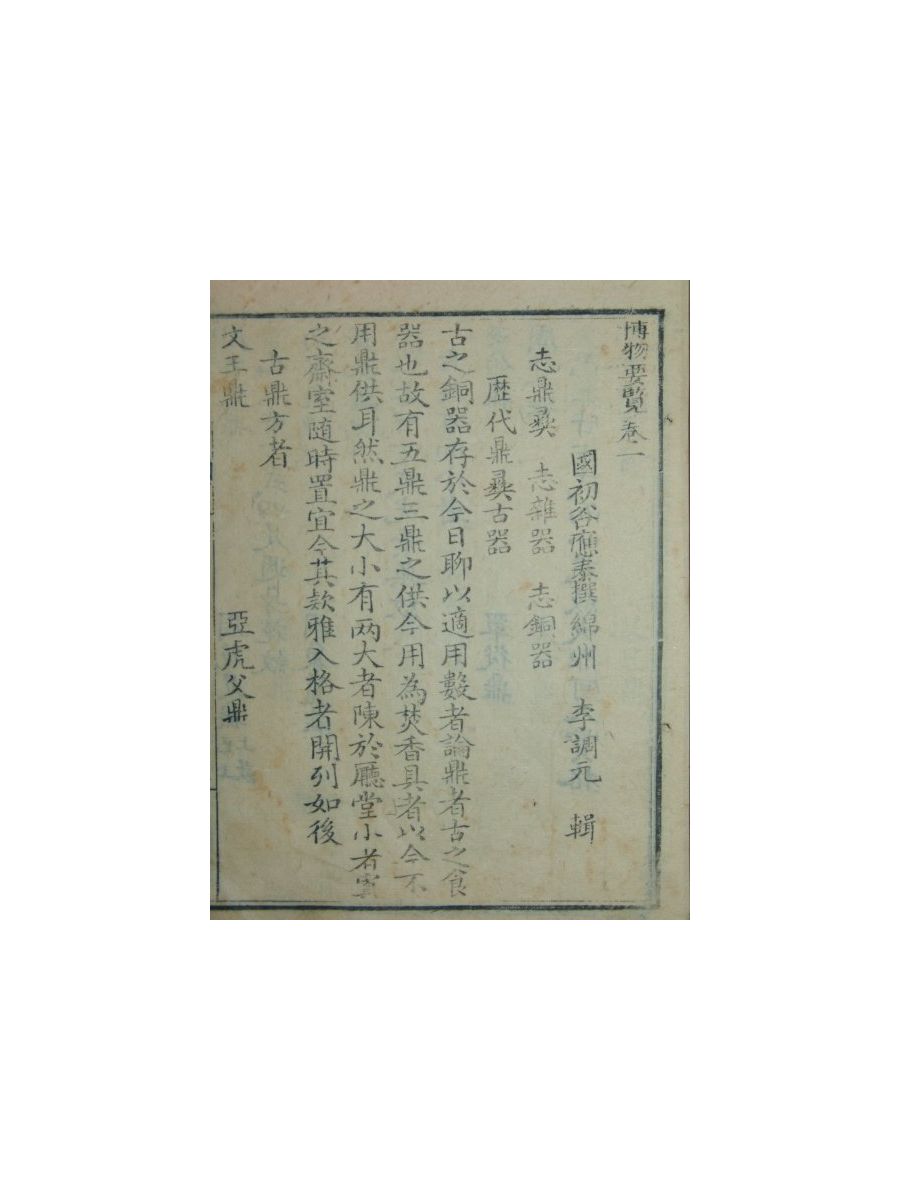 博物要覽卷一
國初谷應泰撰綿州李調元 輯
志鼎彝 志雜器 志銅器
歷代鼎彝古器
古之銅器存於今日聊以適用數者論鼎者古之食
器也故有五鼎三鼎之供今用為焚香具者以今不
用鼎供耳然鼎之大小有两大者陳於廳堂小者寘
之齋室随時置宜今其款雅入格者開列如後
古鼎方者
文王鼎 亞虎父鼎